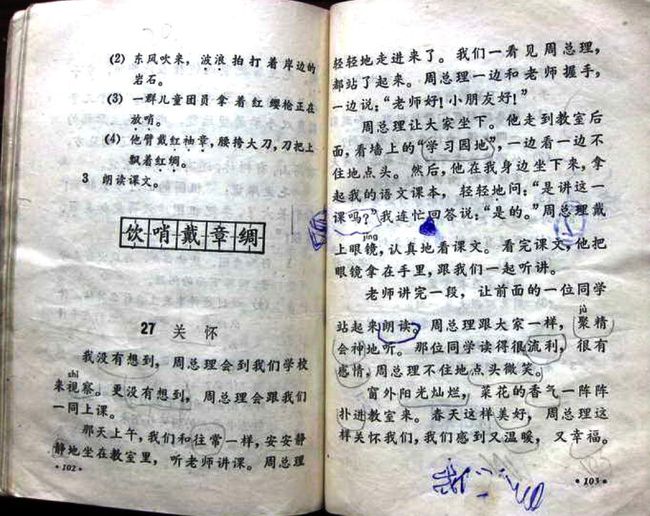 (2) 东风吹来，波浪拍打着岸边的
岩石。
(3) 一群儿童团员拿着红缨枪正在
放哨。
(4) 他臂戴红袖章，腰挎大刀，刀把上
飘着红绸。
3 朗读课文。
饮哨戴章绸
27 关怀
我没有想到，周总理会到我们学校
shì
来视察。更没有想到，周总理会跟我们
一同上课。
那天上午，我们和往常一样，安安静
静地坐在教室里，听老师讲课。周总理
·102·
轻轻地走进来了。我们一看见周总理，
都站了起来。周总理一边和老师握手，
一边说：“老师好！小朋友好！”
周总理让大家坐下。他走到教室后
面，看墙上的“学习园地”，一边看一边不
住地点头。然后，他在我身边坐下来，拿
起我的语文课本，轻轻地问：“是讲这一
课吗？”我连忙回答说：“是的。”周总理戴
jìng
上眼镜，认真地看课文。看完课文，他把
眼镜拿在手里，跟我们一起听讲。
老师讲完一段，让前面的一位同学
jù
站起来朗读。周总理跟大家一样，聚精
会神地听。那位同学读得很流利，很有
感情，周总理不住地点头微笑。
窗外阳光灿烂，菜花的香气一阵阵
扑进教室来。春天这样美好，周总理这
样关怀我们，我们感到又温暖，又幸福。
·103·